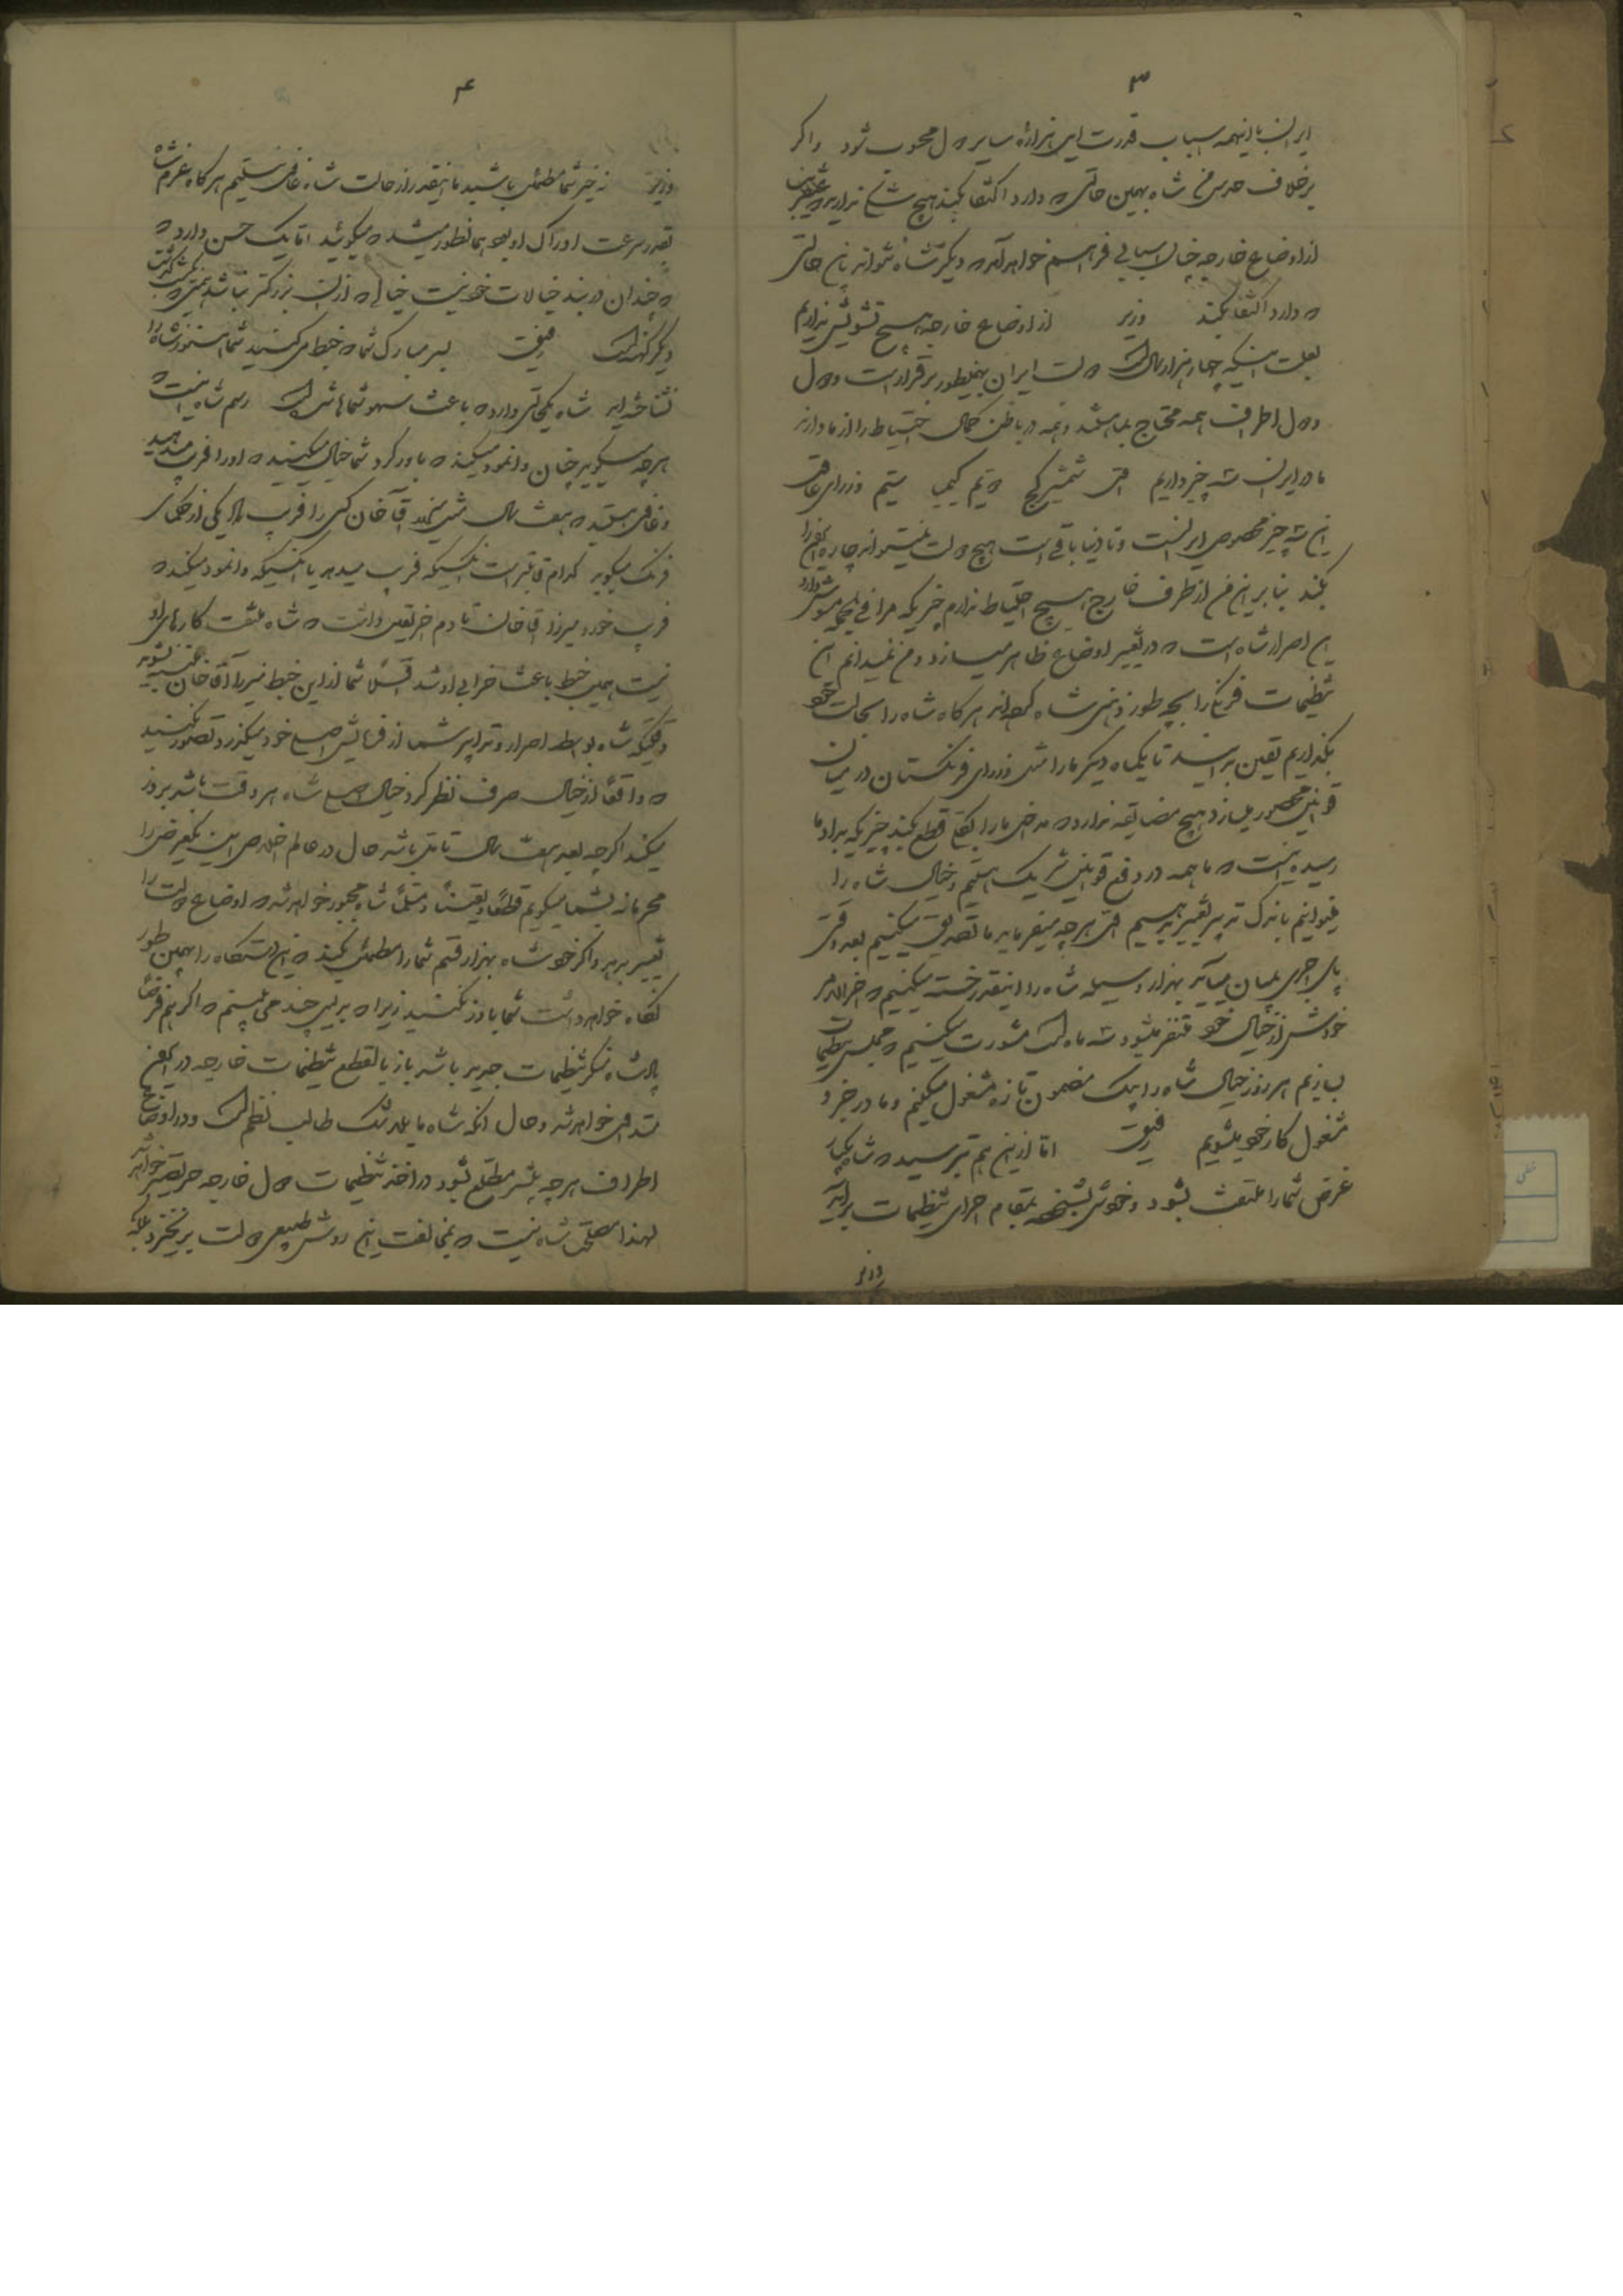 ۳
ایران با اینهمه اسباب قدرت این هزاره سایر دول محسوب شود و اگر
برخلاف حدس من شاه بهمین حالتی که دارد اکتفا بکند هیچ شک ندارید که عنقریب
از اوضاع خارجه چنان اسبابی فراهم خواهد آمد که دیگر شاه نتواند باین حالتی
که دارد اکتفا بکند وزیر از اوضاع خارجه هیچ تشویش نداریم
بعلت اینکه چهار هزار سال است دولت ایران بهمینطور برقرار است و دول
دول اطراف همه محتاج بما هستند و همه در باطن کمال احتیاط را از ما دارند
ما در ایران سه چیز داریم شمشیر کج وزرای عاقل
این سه چیز مخصوص ایرانست و تا دنیا باقی است هیچ دولت نمیتواند چاره اینها را
بکند بنابراین من از طرف خارج هیچ احتیاط ندارم چیزیکه مرا فی الجمله مشوش دارد
این اصرار شاه است که در تغییر اوضاع ظاهر میسازد و من نمیدانم این
تنظیمات فرنگی را بچه طور ذهنی شاه کرده‌اند هرگاه شاه را بحالت خود
بگذاریم یقین بدانید تا یکماه دیگر ما را مثل وزرای فرنگستان در میان
قوانین محصور میسازد هیچ مضایقه ندارد که مداخل ما را بکلی قطع بکند چیزیکه بداد ما
رسیده اینست که ما همه در دفع قوانین شریک هستیم و خیال شاه را
میتوانیم باندک تدبیر تغییر بدهیم هرچه میفرماید ما تصدیق میکنیم بعد وقتی
پای اجری بمیان میآید بهزار وسیله شاه را اینقدر خسته میکنیم که آخر الامر
خودش از خیال خود متنفر میشود سه ماه است مشورت میکنیم که مجلس تنظیمات
بسازیم هر روز خیال شاه را بیک مضمون تازه مشغول میکنیم و ما در جزو
مشغول کار خود میشویم رفیق اما ازین هم بترسید که شاه یکبار
غرض شما را ملتفت بشود و خودش بشخصه بمقام اجرای تنظیمات برآید
وزیر
۴
وزیر نه خیر شما مطمئن باشید ما اینقدر از حالت شاه غافل نیستیم هرگاه عزم شاه
بقدر سرعت ادراک او بود همانطور میشد که میگوئید اما یک حسن دارد که
که چندان در بند خیالات خود نیست خیالی که ازان بزرگتر نباشد همینکه یکشب گذشت
دیگر کهنه است رفیق بسر مبارک شما که خبط می‌کنید شما هنوز شاه را
نشناخته‌اید شاه یکحالتی دارد که باعث سهو شماها شده است رسم شاه اینست که
هرچه میگویید چنان وانمود میکند که باور کرد شما خیال میکنید که او را فریب میدهید
و غافل هستید که هفت سال میرزا آقا خان کسی را فریب یکی از حکمای
فرنگ میگوید کدام قابلتر است آنکسیکه فریب میدهد یا آنکسیکه وانمود میکند که
فریب خورد میرزا آقا خان تا دم آخر یقین داشت که شاه ملتفت کارهای او
نیست همین خبط باعث خرابی او شد شما ازاین خبط میرزا آقا خان متنبه بشوید
وقتیکه شاه بواسطه اصرار و تدابیر شما از فرمایش اصلی خود میگذرد تصور نکنید
که واقعاً از خیال صرف نظر کرد خیال اصلی شاه هر وقت باشد بروز
میکند اگرچه بعد هفت سال تأمل باشد حال در عالم اخلاص این یکعرض را
محرمانه بشما میگویم قطعاً و یقیناً و مسلماً شاه مجبور خواهد شد که اوضاع دولت را
تغییر بدهد و اگر خود شاه بهزار قسم شما را مطمئن بکند که این دستگاه را بهمین طور
نگاه خواهد داشت شما باور نکنید زیرا که بدلیل چند می‌بینم که اگر هم فرضاً
پادشاه منکر تنظیمات جدید باشد باز بالقطع تنظیمات خارجه در ایران
متداول خواهد شد و حال آنکه شاه ما بلاشک طالب نظم است و در اوضاع
اطراف هرچه بیشتر مطلع بشود در اخذ تنظیمات دول خارجه حریصتر خواهد شد
لهذا مصلحت شاه نیست که بمخالفت این روش طبیعی دولت برخیزد بلکه